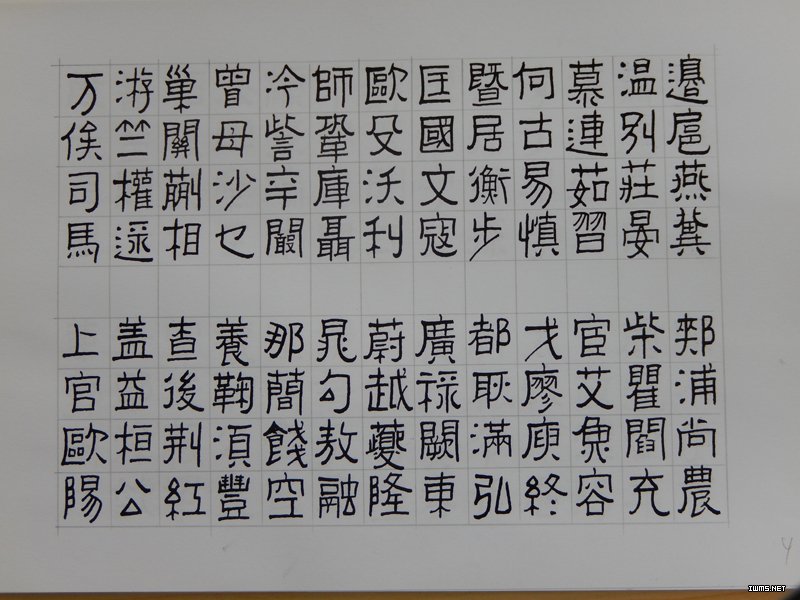 邊扈燕冀
郟浦尚農
温別莊晏
柴瞿閻充
慕連茹習
宦艾魚容
向古易慎
戈廖庾終
暨居衡步
都耿滿弘
匡國文寇
廣祿闕東
歐殳沃利
蔚越夔隆
師鞏庫聶
晁勾敖融
冷訾辛闞
那簡餞空
曾母沙乜
養鞠須豐
巢關蒯相
查後荆紅
游竺權逯
盖益桓公
万俟司馬
上官歐陽
IWMS.NET